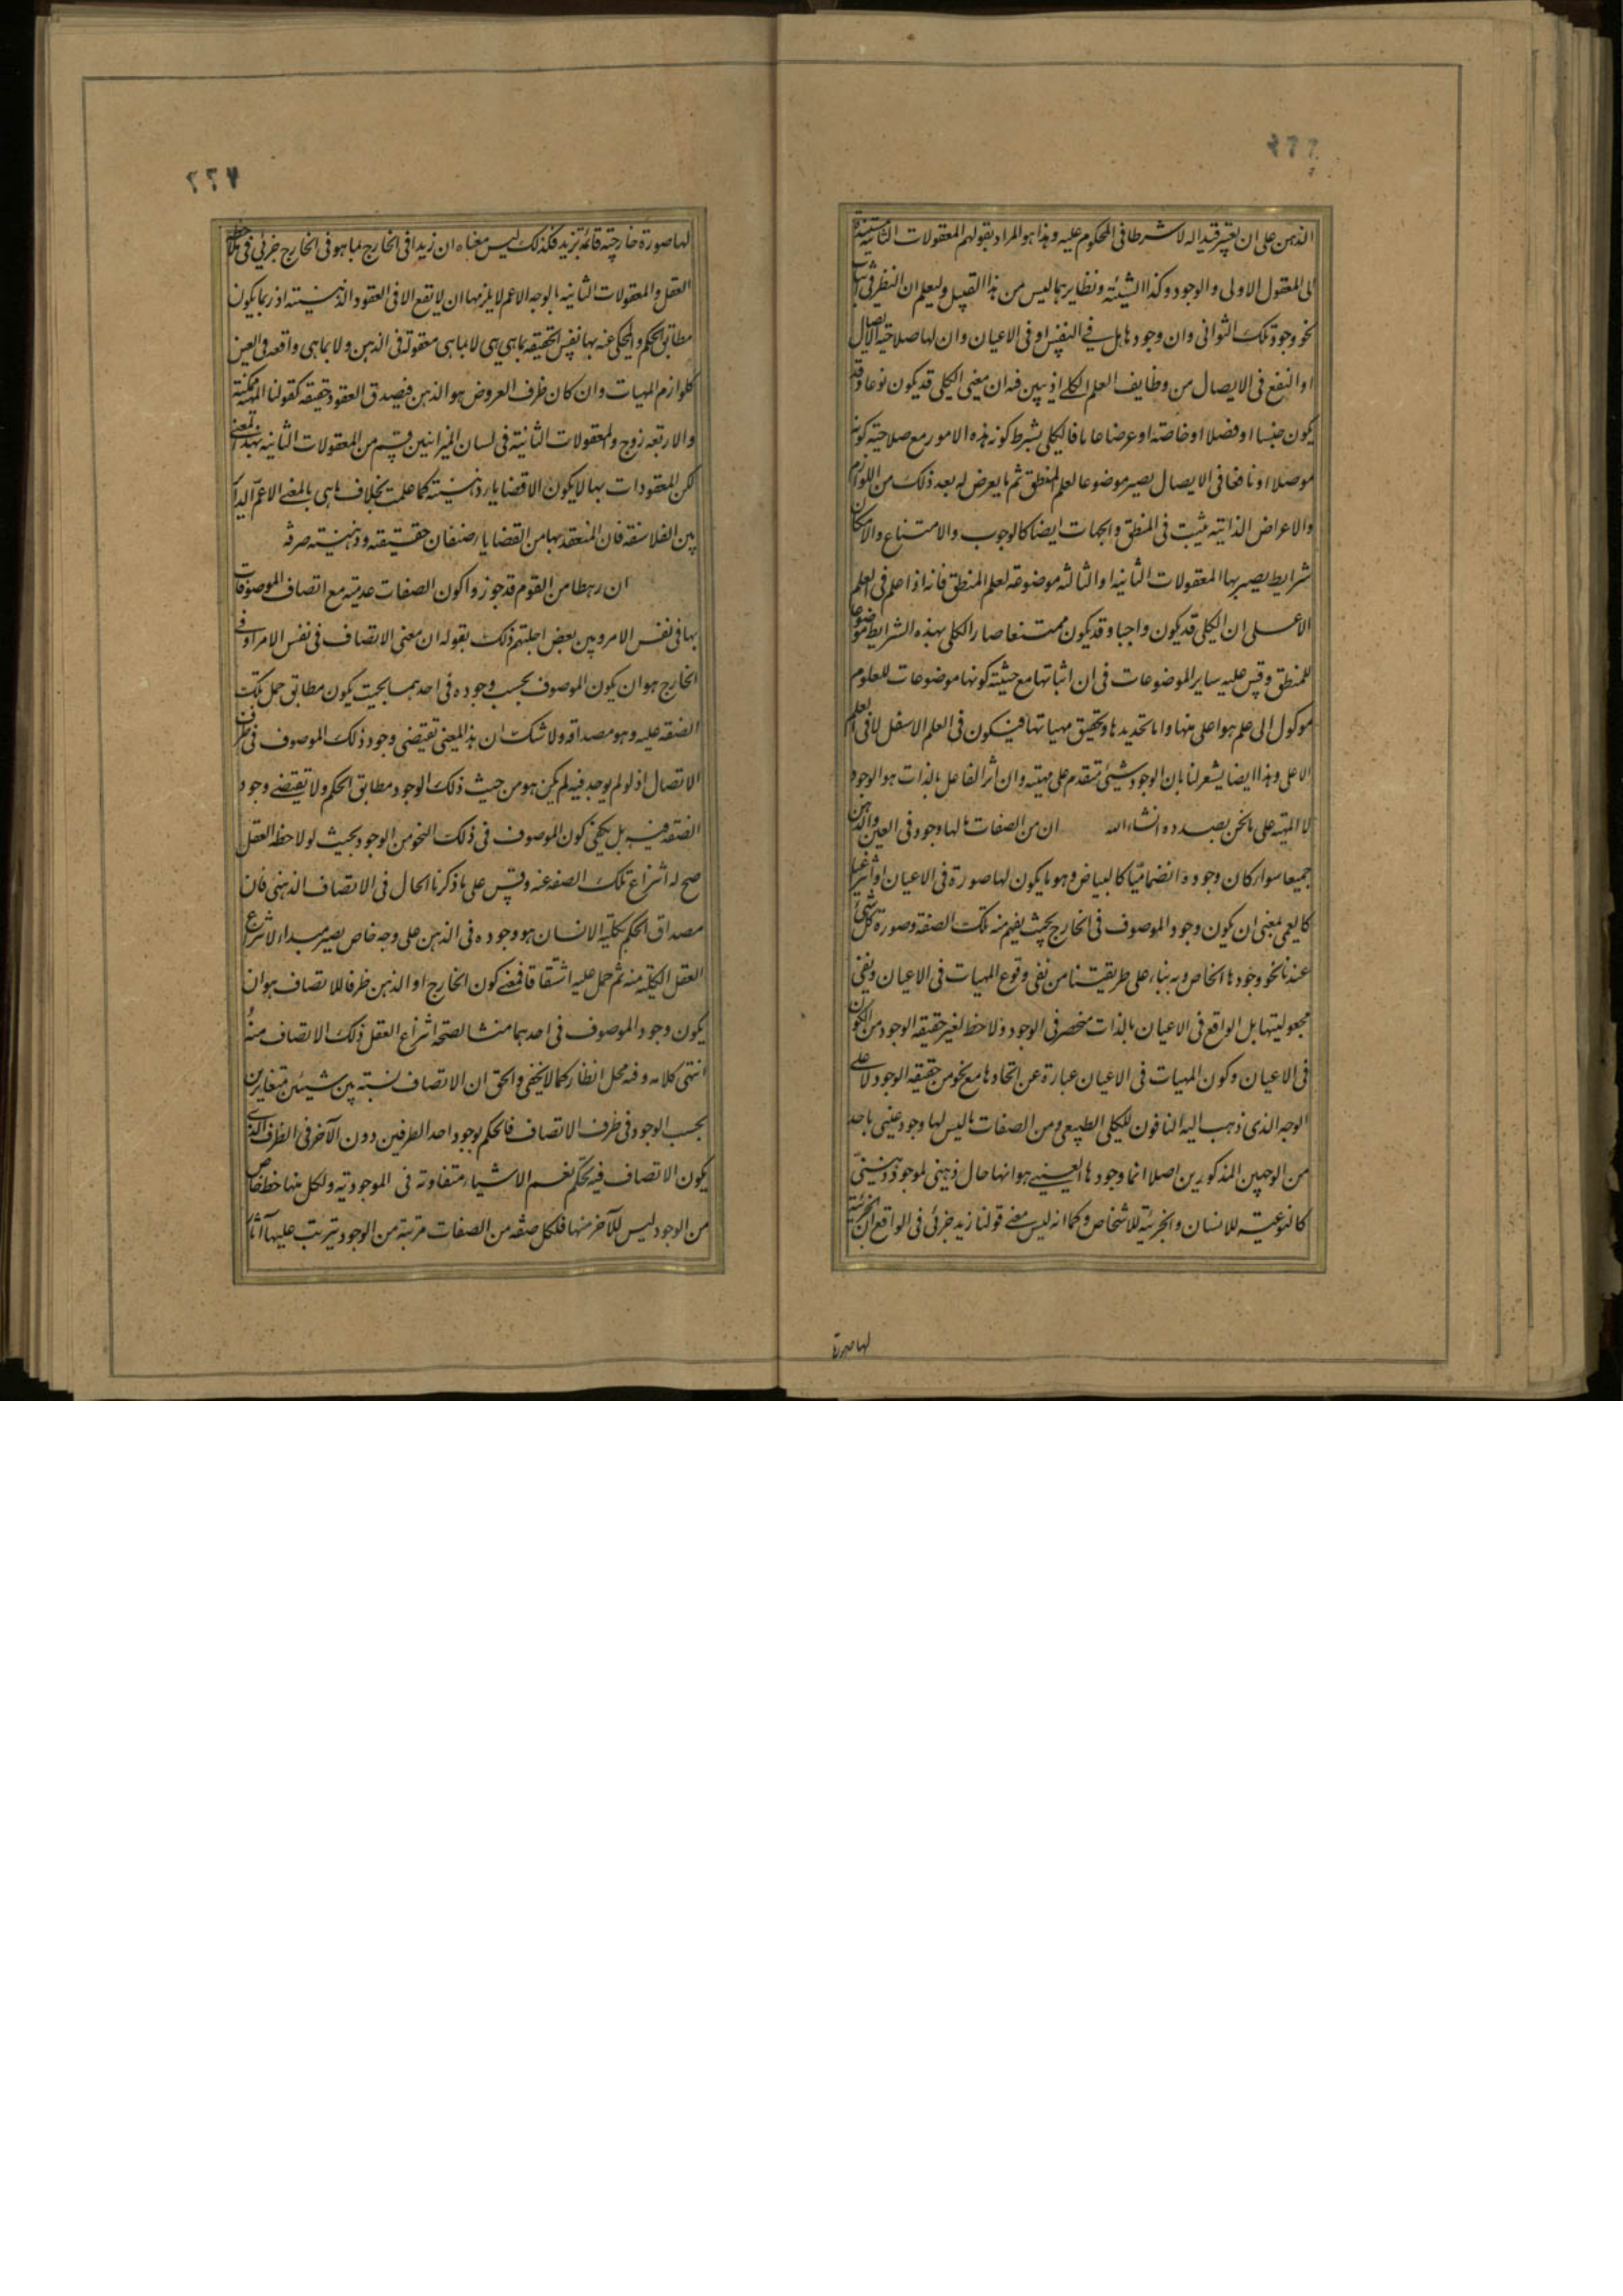 ٢٢٦
الذهن على ان تعتبر قيدا له لا شرطا فى المحكوم عليه وهذا هو المراد بقولهم المعقولات الثانيه مستندة
الى المعقول الاولى والوجود وكذا الشيئية ونظايرهما ليس من هذا القبيل وليعلم ان النظر فى اثبات
نحو وجود تلك الثوانى وان وجودها هل فى النفس او فى الاعيان وان لها صلاحية الايصال
او النفع فى الايصال من وظايف العلم الكلى اذ يبين فيه ان معنى الكلى قد يكون نوعا وقد
يكون جنسا او فصلا او خاصة او عرضا عاما فالكلى بشرط كونه هذه الامور مع صلاحية كونه
موصلا او نافعا فى الايصال يصير موضوعا لعلم المنطق ثم ما يعرض له بعد ذلك من اللوازم
والاعراض الذاتية يثبت فى المنطق والجهات ايضا كالوجوب والامتناع والامكان
شرايط يصير بها المعقولات الثانية او الثالثه موضوعه لعلم المنطق فانه اذا علم فى العلم
الاعلى ان الكلى قد يكون واجبا وقد يكون ممتنعا صار الكلى بهذه الشرايط موضوعا
للمنطق وقس عليه ساير الموضوعات فى ان اثباتها مع حيثية كونها موضوعات للعلوم
موكول الى علم هو اعلى منها واما تحديدها وتحقيق مهياتها فيكون فى العلم الاسفل لا فى العلم
الاعلى وهذا ايضا يشعر لنا بان الوجود شىء متقدم على مهيته وان اثر الفاعل بالذات هو الوجود
لا المهية على ما نحن بصدده انشاء الله ان من الصفات ما لها وجود فى العين والذهن
جميعا سواء كان وجوده انضماميا كالبياض وهو ما يكون لها صورة فى الاعيان او انتزاعيا
كالعمى بمعنى ان يكون وجود الموصوف فى الخارج بحيث يفهم منه تلك الصفة وصورة كل شىء
عندنا نحو وجودها الخاص به بناء على طريقتنا من نفى وقوع المهيات فى الاعيان ونفى
مجعوليتها بل الواقع فى الاعيان بالذات منحصر فى الوجود ولا حظ لغير حقيقه الوجود من الكون
فى الاعيان وكون المهيات فى الاعيان عبارة عن اتحادها مع نحو من حقيقه الوجود لا على
الوجه الذى ذهب اليه النافون للكلى الطبيعى ومن الصفات ما ليس لها وجود عينى باحد
من الوجهين المذكورين اصلا انما وجودها العينى هو انها حال ذهنى لموجود ذهنى
كالنوعية للانسان والجزئية للاشخاص وكما انه ليس معنى قولنا زيد جزئى فى الواقع ان الجزئية
لها صورة
٢٢٧
لها صورة خارجية قائمة بزيد فكذلك ليس معناه ان زيدا فى الخارج بما هو فى الخارج جزئى فى ملاحظة
العقل والمعقولات الثانيه بالوجه الاعم لا يلزمها ان لا يقع الا فى العقود الذهنية اذ ربما يكون
مطابق الحكم والمحكى عنه بها نفس الحقيقه بما هى هى لا بما هى معقولة فى الذهن ولا بما هى واقعه فى العين
كلوازم المهيات وان كان ظرف العروض هو الذهن فيصدق العقود حقيقه كقولنا المهية ممكنة
والاربعه زوج والمعقولات الثانية فى لسان الميزانيين قسم من المعقولات الثانيه بهذا المعنى
لكن المعقودات بها لا يكون الا قضايا ذهنية كما علمت بخلاف ما هى بالمعنى الاعم الدائر
بين الفلاسفة فان المنعقد بها من القضايا صنفان حقيقية وذهنية صرفة
ان رهطا من القوم قد جوزوا كون الصفات عدمية مع اتصاف الموصوفات
بها فى نفس الامر وبين بعض اجلتهم ذلك بقوله ان معنى الاتصاف فى نفس الامر او فى
الخارج هو ان يكون الموصوف بحسب وجوده فى احدهما بحيث يكون مطابق حمل تلك
الصفة عليه وهو مصداقه ولا شك ان هذا المعنى يقتضى وجود ذلك الموصوف فى ظرف
الاتصال اذ لو لم يوجد فيه لم يكن هو من حيث ذلك الوجود مطابق الحكم ولا يقتضى وجود
الصفة فيه بل يكفى كون الموصوف فى ذلك النحو من الوجود بحيث لو لاحظه العقل
صح له انتزاع تلك الصفه عنه وقس على ما ذكرنا الحال فى الاتصاف الذهنى فان
مصداق الحكم بكلية الانسان هو وجوده فى الذهن على وجه خاص يصير مبداء لانتزاع
العقل الكلية منه ثم حمل عليه اشتقاقا فمعنى كون الخارج او الذهن ظرفا للاتصاف هو ان
يكون وجود الموصوف فى احدهما منشا لصحة انتزاع العقل ذلك الاتصاف منه
انتهى كلامه وفيه محل انظار كما لا يخفى والحق ان الاتصاف نسبة بين شيئين متغايرين
بحسب الوجود فى ظرف الاتصاف فالحكم بوجود احد الطرفين دون الآخر فى الظرف الذى
يكون الاتصاف فيه تحكم نعم الاشياء متفاوتة فى الموجودية ولكل منها حظ خاص
من الوجود ليس للآخر منها فلكل صفة من الصفات مرتبة من الوجود يترتب عليها آثار